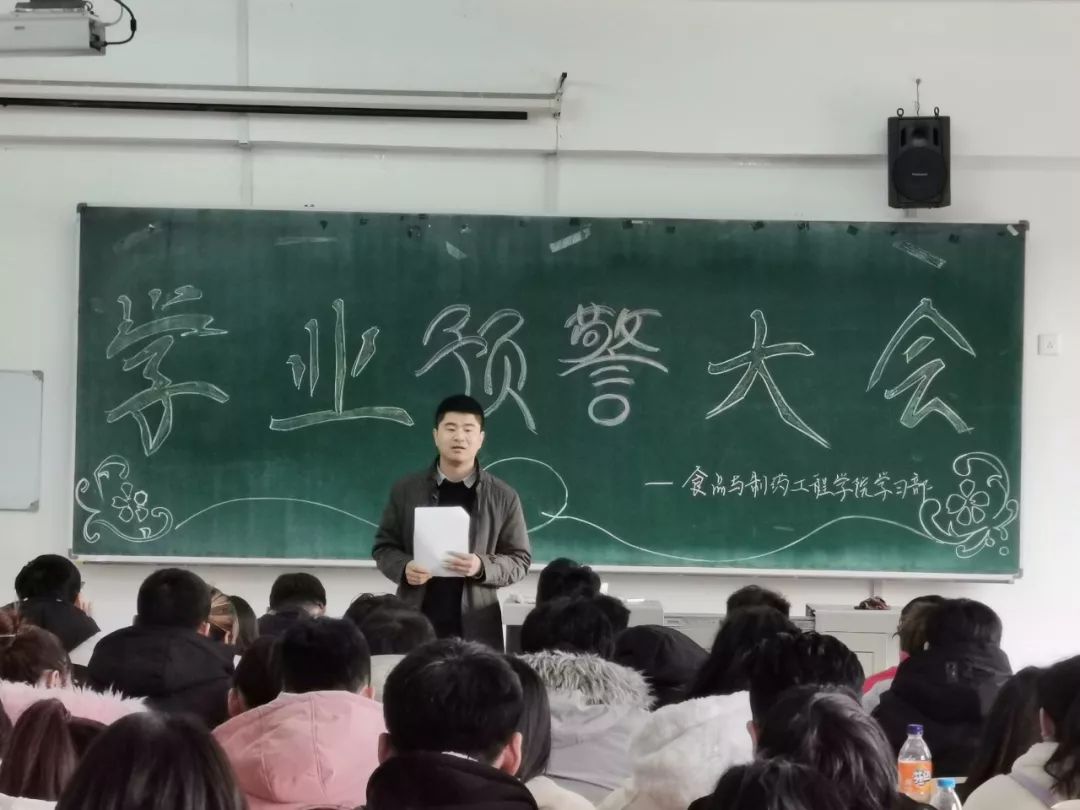 学业预警大会
— 食品与制药工程学院学习部